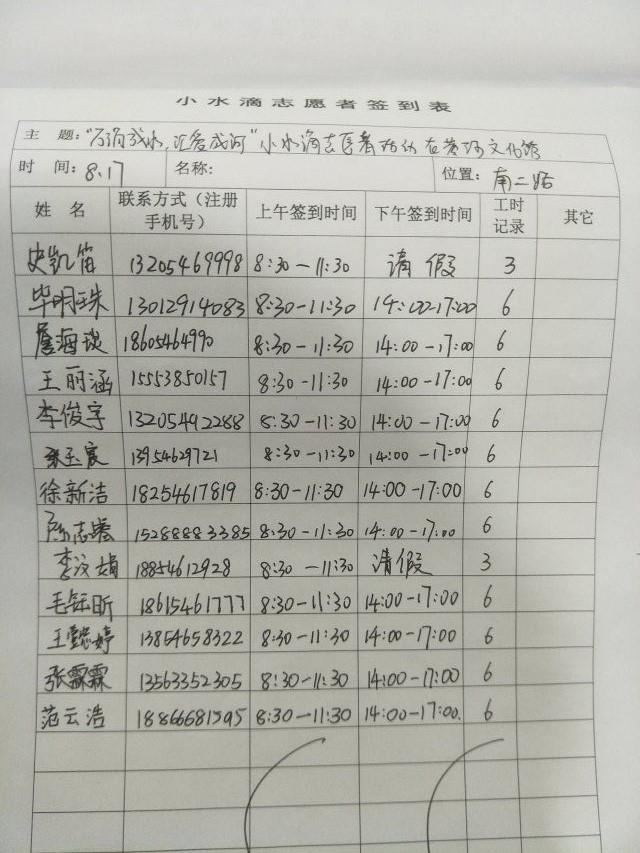 小水滴志愿者签到表
主 题: "万滴成水,汇爱成河"小水滴志愿者活动在黄河文化馆
时 间: 8.17 名称: 位置: 南二路
姓 名 联系方式(注册手机号) 上午签到时间 下午签到时间 工时记录 其它
史凯笛 13205469998 8:30-11:30 请假 3
毕明珠 13012914083 8:30-11:30 14:00-17:00 6
詹海琰 18605464990 8:30-11:30 14:00-17:00 6
王丽涵 15553850157 8:30-11:30 14:00-17:00 6
李俊宇 13205492288 8:30-11:30 14:00-17:00 6
张玉宸 13954629721 8:30-11:30 14:00-17:00 6
徐新洁 18254617819 8:30-11:30 14:00-17:00 6
15288883385 8:30-11:30 14:00-17:00 6
李汶娟 18854612928 8:30-11:30 请假 3
毛钰昕 18615461777 8:30-11:30 14:00-17:00 6
王懿婷 13854658322 8:30-11:30 14:00-17:00 6
张霖霖 13563352305 8:30-11:30 14:00-17:00 6
范云浩 18866681595 8:30-11:30 14:00-17:00. 6